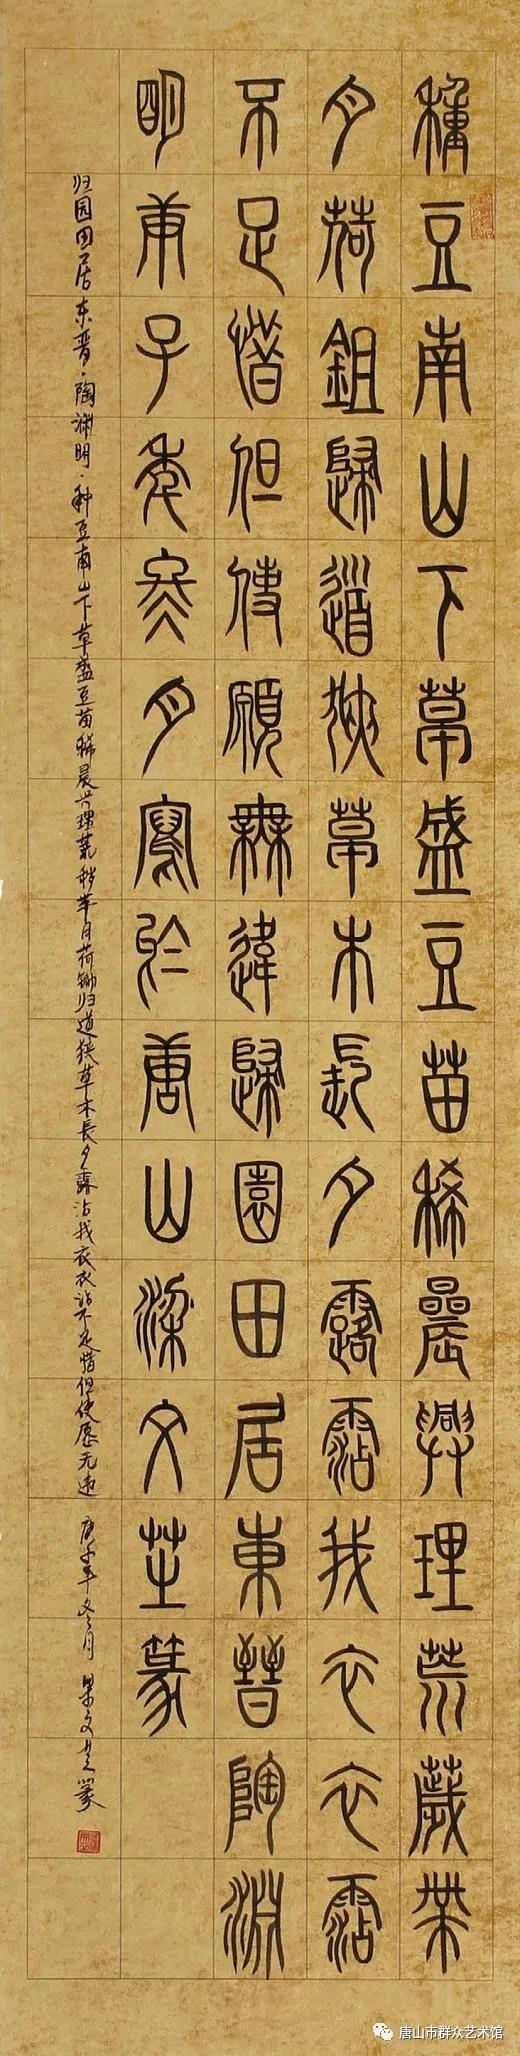 種豆南山下草盛豆苗稀晨興理荒薉帶
月荷鉏歸道狹草木長夕露霑我衣衣霑
不足惜但使願無違歸園田居東晉陶淵
明庚子年冬月寫於唐山梁文芝篆
归园田居东晋·陶渊明·种豆南山下草盛豆苗稀晨兴理荒秽带月荷锄归道狭草木長夕露沾我衣衣沾不足惜但使愿无违 庚子年冬月梁文芝篆
唐山市群众艺术馆